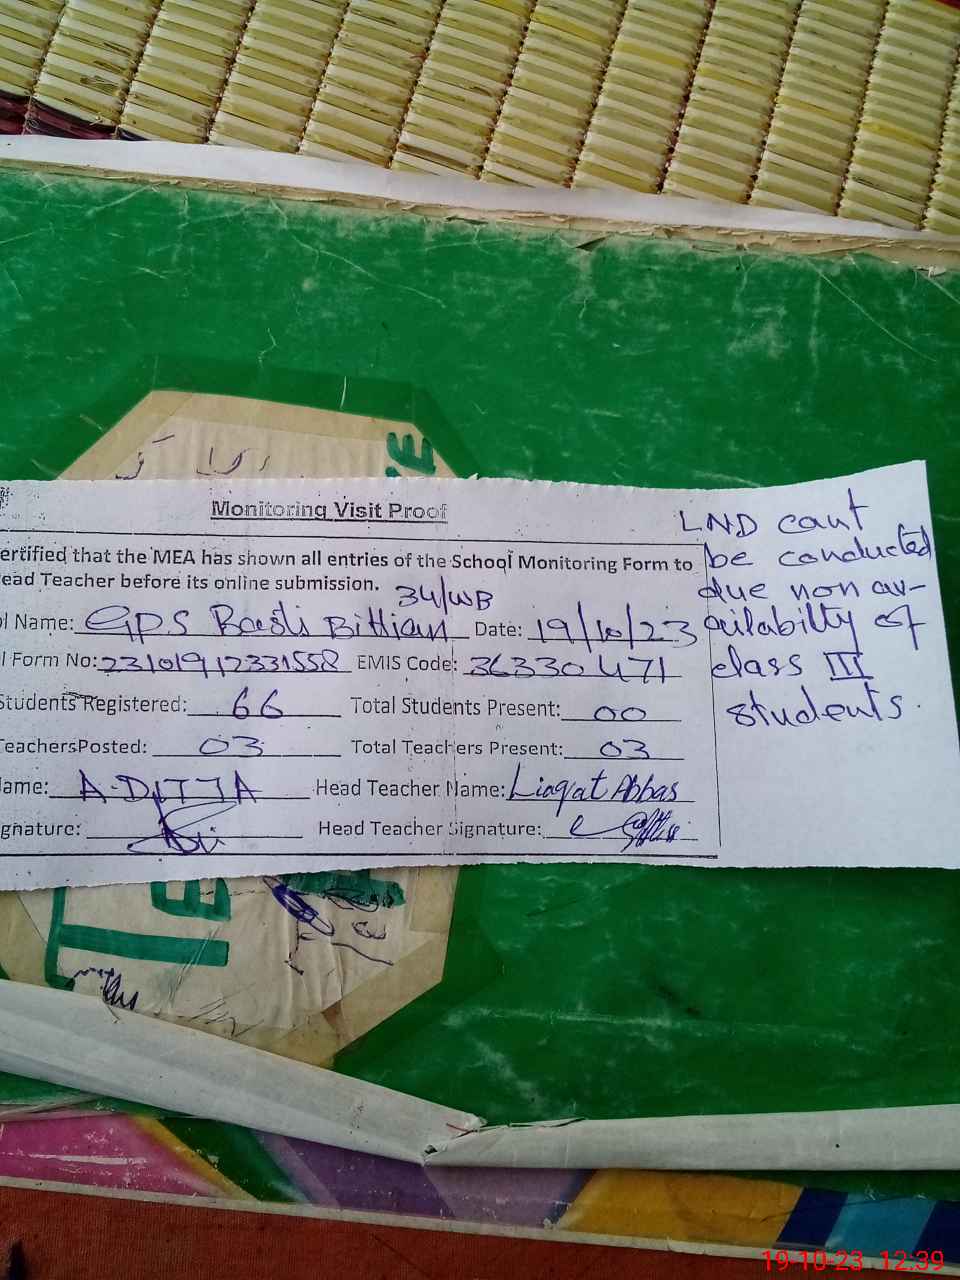 Monitoring Visit Proof
ertified that the MEA has shown all entries of the School Monitoring Form to
ead Teacher before its online submission.
34/WB
ol Name: GPS Basti Bittian Date: 19/10/23
l Form No: 23101912331558 EMIS Code: 36330471
Students Registered: 66 Total Students Present: 00
TeachersPosted: 03 Total Teachers Present: 03
Name: A-DITTA Head Teacher Name: Liaqat Abbas
gnature: Head Teacher Signature:
LND cant
be conducted
due non av-
ailability of
class III
students.
TE
19-10-23 12:39